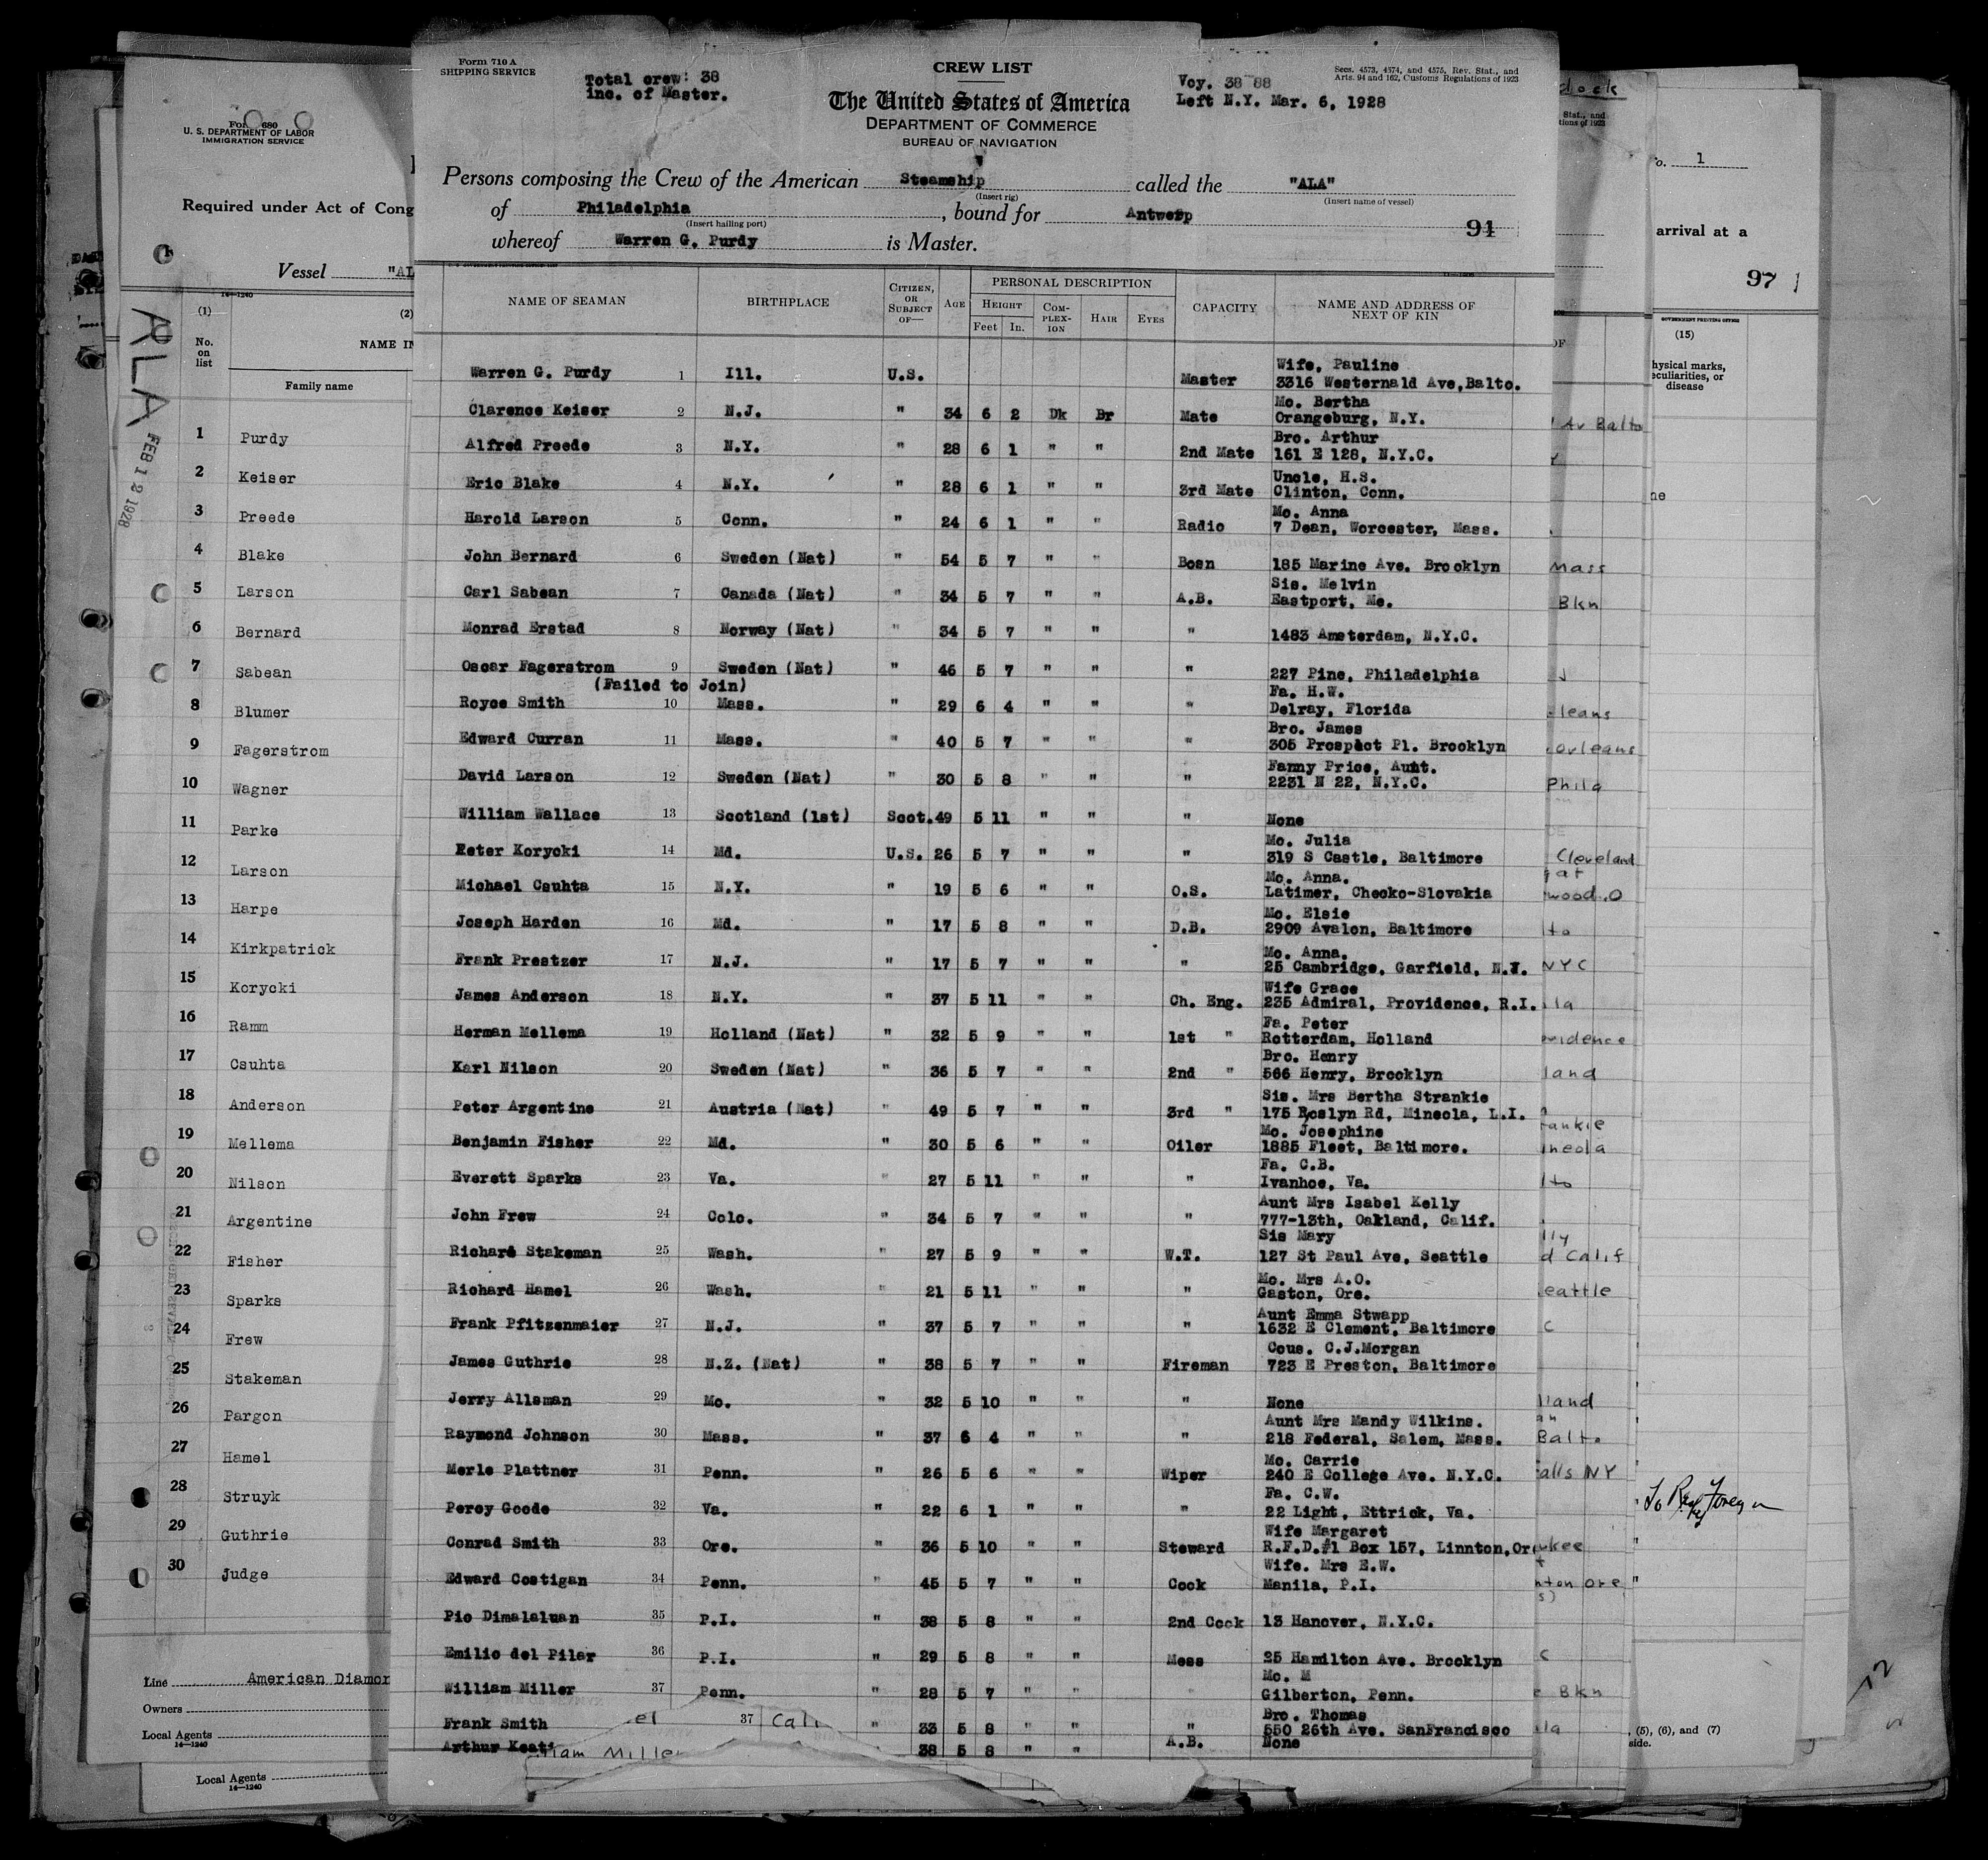 Form 710 A
SHIPPING SERVICE
Total crew: 38
inc. of Master.
CREW LIST
The United States of America
DEPARTMENT OF COMMERCE
BUREAU OF NAVIGATION
Voy. 38 88
Left N.Y. Mar. 6, 1928
Secs. 4573, 4574, and 4575, Rev. Stat., and
Arts. 94 and 162, Customs Regulations of 1923
Persons composing the Crew of the American Steamship called the "ALA"
(Insert rig) (Insert name of vessel)
of Philadelphia, bound for Antwerp
(Insert hailing port)
94
whereof Warren G. Purdy is Master.
NAME OF SEAMAN BIRTHPLACE CITIZEN, OR SUBJECT OF— AGE PERSONAL DESCRIPTION CAPACITY NAME AND ADDRESS OF NEXT OF KIN
HEIGHT COMPLEXION HAIR EYES
Feet In.
Warren G. Purdy 1 Ill. U.S. Master Wife, Pauline
3316 Westernald Ave,Balto.
Clarence Keiser 2 N.J. " 34 6 2 Dk Br Mate Mo. Bertha
Orangeburg, N.Y.
Alfred Preede 3 N.Y. " 28 6 1 " " 2nd Mate Bro. Arthur
161 E 128, N.Y.C.
Eric Blake 4 N.Y. " 28 6 1 " " 3rd Mate Uncle, H.S.
Clinton, Conn.
Harold Larson 5 Conn. " 24 6 1 " " Radio Mo. Anna
7 Dean, Worcester, Mass.
John Bernard 6 Sweden (Nat) " 54 5 7 " " Bosn 185 Marine Ave. Brooklyn
Carl Sabean 7 Canada (Nat) " 34 5 7 " " A.B. Sis. Melvin
Eastport, Me.
Monrad Erstad 8 Norway (Nat) " 34 5 7 " " " 1483 Amsterdam, N.Y.C.
Oscar Fagerstrom 9 Sweden (Nat) " 46 5 7 " " " 227 Pine, Philadelphia
(Failed to Join)
Royce Smith 10 Mass. " 29 6 4 " " " Fa. H.W.
Delray, Florida
Edward Curran 11 Mass. " 40 5 7 " " " Bro. James
305 Prospect Pl. Brooklyn
David Larson 12 Sweden (Nat) " 30 5 8 " " " Fanny Price, Aunt.
2231 N 22, N.Y.C.
William Wallace 13 Scotland (1st) Scot. 49 5 11 " " " None
Peter Korycki 14 Md. U.S. 26 5 7 " " " Mo. Julia
319 S Castle, Baltimore
Michael Csuhta 15 N.Y. " 19 5 6 " " O.S. Mo. Anna.
Latimer, Checko-Slovakia
Joseph Harden 16 Md. " 17 5 8 " " D.B. Mo. Elsie
2909 Avalon, Baltimore
Frank Prestzer 17 N.J. " 17 5 7 " " " Mo. Anna.
25 Cambridge, Garfield, N.J.
James Anderson 18 N.Y. " 37 5 11 " " Ch. Eng. Wife Grace
235 Admiral, Providence, R.I.
Herman Mellema 19 Holland (Nat) " 32 5 9 " " 1st " Fa. Peter
Rotterdam, Holland
Karl Nilson 20 Sweden (Nat) " 36 5 7 " " 2nd " Bro. Henry
566 Henry, Brooklyn
Peter Argentine 21 Austria (Nat) " 49 5 7 " " 3rd " Sis. Mrs Bertha Strankie
175 Roslyn Rd, Mineola, L.I.
Benjamin Fisher 22 Md. " 30 5 6 " " Oiler Mo. Josephine
1885 Fleet, Baltimore.
Everett Sparks 23 Va. " 27 5 11 " " " Fa. C.B.
Ivanhoe, Va.
John Frew 24 Colo. " 34 5 7 " " " Aunt Mrs Isabel Kelly
777-13th, Oakland, Calif.
Richard Stakeman 25 Wash. " 27 5 9 " " W.T. Sis Mary
127 St Paul Ave, Seattle
Richard Hamel 26 Wash. " 21 5 11 " " " Mo. Mrs A.O.
Gaston, Ore.
Frank Pfitzenmaier 27 N.J. " 37 5 7 " " " Aunt Emma Stwapp
1632 E Clement, Baltimore
James Guthrie 28 N.Z. (Nat) " 38 5 7 " " Fireman Cous. C.J.Morgan
723 E Preston, Baltimore
Jerry Allsman 29 Mo. " 32 5 10 " " " None
Raymond Johnson 30 Mass. " 37 6 4 " " " Aunt Mrs Mandy Wilkins.
218 Federal, Salem, Mass.
Merle Plattner 31 Penn. " 26 5 6 " " Wiper Mo. Carrie
240 E College Ave. N.Y.C.
Percy Goode 32 Va. " 22 6 1 " " " Fa. C.W.
22 Light, Ettrick, Va.
Conrad Smith 33 Ore. " 36 5 10 " " Steward Wife Margaret
R.F.D.#1 Box 157, Linnton,Or
Edward Costigan 34 Penn. " 45 5 7 " " Cook Wife. Mrs E.W.
Manila, P.I.
Pio Dimalaluan 35 P.I. " 38 5 8 " " 2nd Cook 13 Hanover, N.Y.C.
Emilio del Pilar 36 P.I. " 29 5 8 " " Mess 25 Hamilton Ave. Brooklyn
William Miller 37 Penn. " 28 5 7 " " " Mo. M
Gilberton, Penn.
Frank Smith " 33 5 8 " " " Bro. Thomas
550 26th Ave. SanFrancisco
Arthur Keati " 38 5 8 " " A.B. None
el 37 Cali
iam Miller
Form 680
U. S. DEPARTMENT OF LABOR
IMMIGRATION SERVICE
Required under Act of Cong
Vessel "AL
14—1240
ALA
FEB 12 1928
(1) (2)
No. on list
NAME IN
Family name
1 Purdy
2 Keiser
3 Preede
4 Blake
5 Larson
6 Bernard
7 Sabean
8 Blumer
9 Fagerstrom
10 Wagner
11 Parke
12 Larson
13 Harpe
14 Kirkpatrick
15 Korycki
16 Ramm
17 Csuhta
18 Anderson
19 Mellema
20 Nilson
21 Argentine
22 Fisher
23 Sparks
24 Frew
25 Stakeman
26 Pargon
27 Hamel
28 Struyk
29 Guthrie
30 Judge
Line American Diamon
Owners
Local Agents
14—1240
Local Agents
14—1240
dock
Stat., and
tions of 1923
Av Balto
Mass
Bkn
leans
orleans
Phila
Cleveland
gat
wood.O
lto
NYC
la
vidence
land
rankie
ineola
lto
lly
d Calif
eattle
C
lland
an
Balto
alls NY
ukee
nton ore
s)
C
e Bkn
ila
o. 1
arrival at a
97
GOVERNMENT PRINTING OFFICE
(15)
hysical marks,
eculiarities, or
disease
ne
(5), (6), and (7)
side.
12